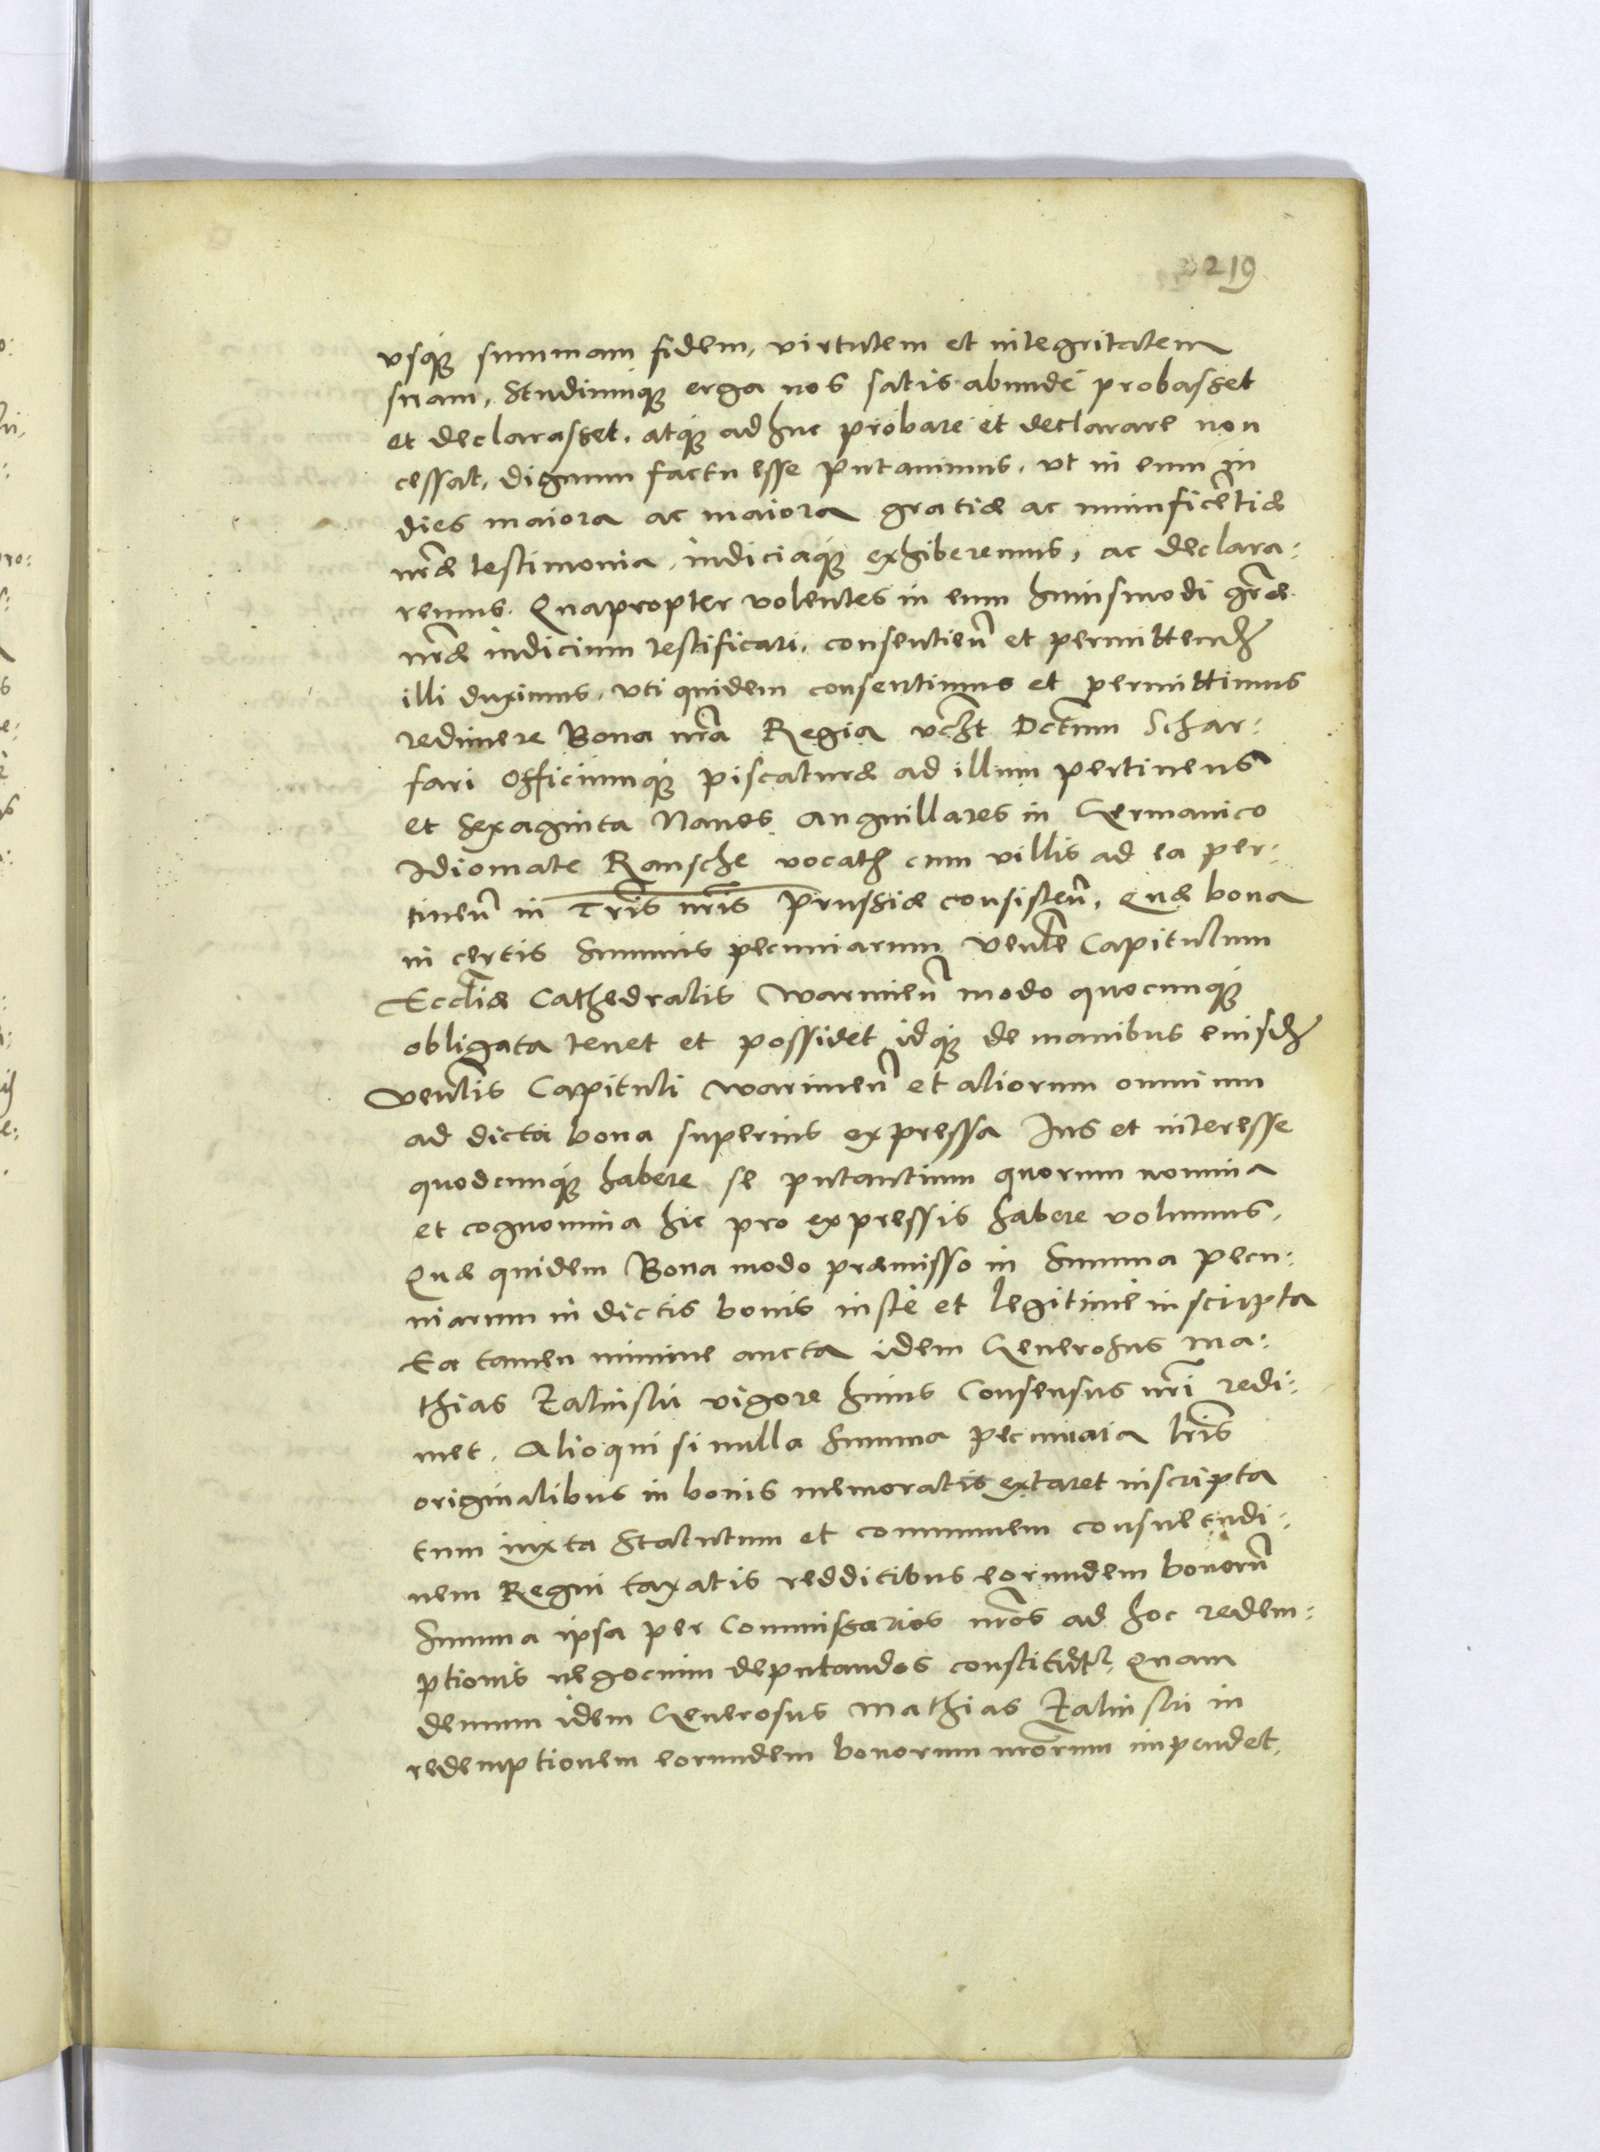 219
vsq₃ summam fidem, virtutem et integritatem
suam, Studiumq₃ erga nos satis abunde probasset
et declarasset, atq₃ adhuc probare et declarare non
cessat, dignum factu esse putavimus, vt in eum in
dies maiora ac maiora gratiæ ac munificẽtiæ
nr̃æ testimonia, indiciaq₃ exhiberemus, ac declara:
remus. Quapropter volentes in eum huiusmodi gr̃æ
nr̃æ indicium testificari, consentien̄ et permittend̄
illi duximus, vti quidem consentimus et permittimus
redimere Bona nr̃a Regia vcꝫt Dctum Schar:
fari Officiumq₃ piscaturæ ad illum pertinens
et sexaginta Naves anguillares in Germanico
Idiomate Ransche vocat̄ cum villis ad ea per:
tinen̄ in Tr̃is nr̃is Prussiæ consisten̄, Quæ bona
in certis Summis pecuniarum Venl̃e Capitulum
Eccl̃iæ Cathedralis Warmien̄ modo quocunq₃
obligata tenet et possidet idq₃ de manibus eiusd̄
Venl̃is Capituli Warmien̄ et aliorum omnium
ad dicta bona superius expressa Ius et interesse
quodcunq₃ habere se putantium quorum nomina
et cognomina hic pro expressis habere volumus,
Quæ quidem Bona modo præmisso in Summa pecu:
niarum in dictis bonis iuste et legitime inscripta
Ea tamen minime aucta idem Generosus Ma:
thias Zalinski vigore huius Consensus nr̃i redi:
met. Alioqui si nulla Summa pecuniaia lr̃is
originalibus in bonis memoratis extaret inscripta
tum iuxta Statutum et communem consuetudi:
nem Regni taxatis redditibus eorundem bonorũ
Summa ipsa per Commissarios nr̃os ad hoc redem:
ptionis negocium deputandos constituet̃, Quam
demum idem Generosus Mathias Zalinski in
redemptionem eorundem bonorum nr̃orum impendet,